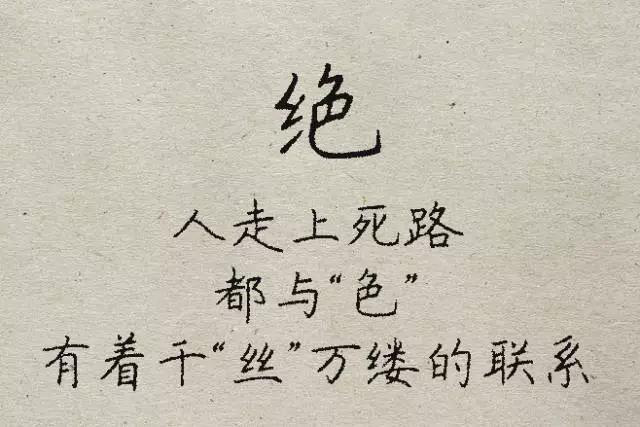 绝
人走上死路
都与“色”
有着千“丝”万缕的联系